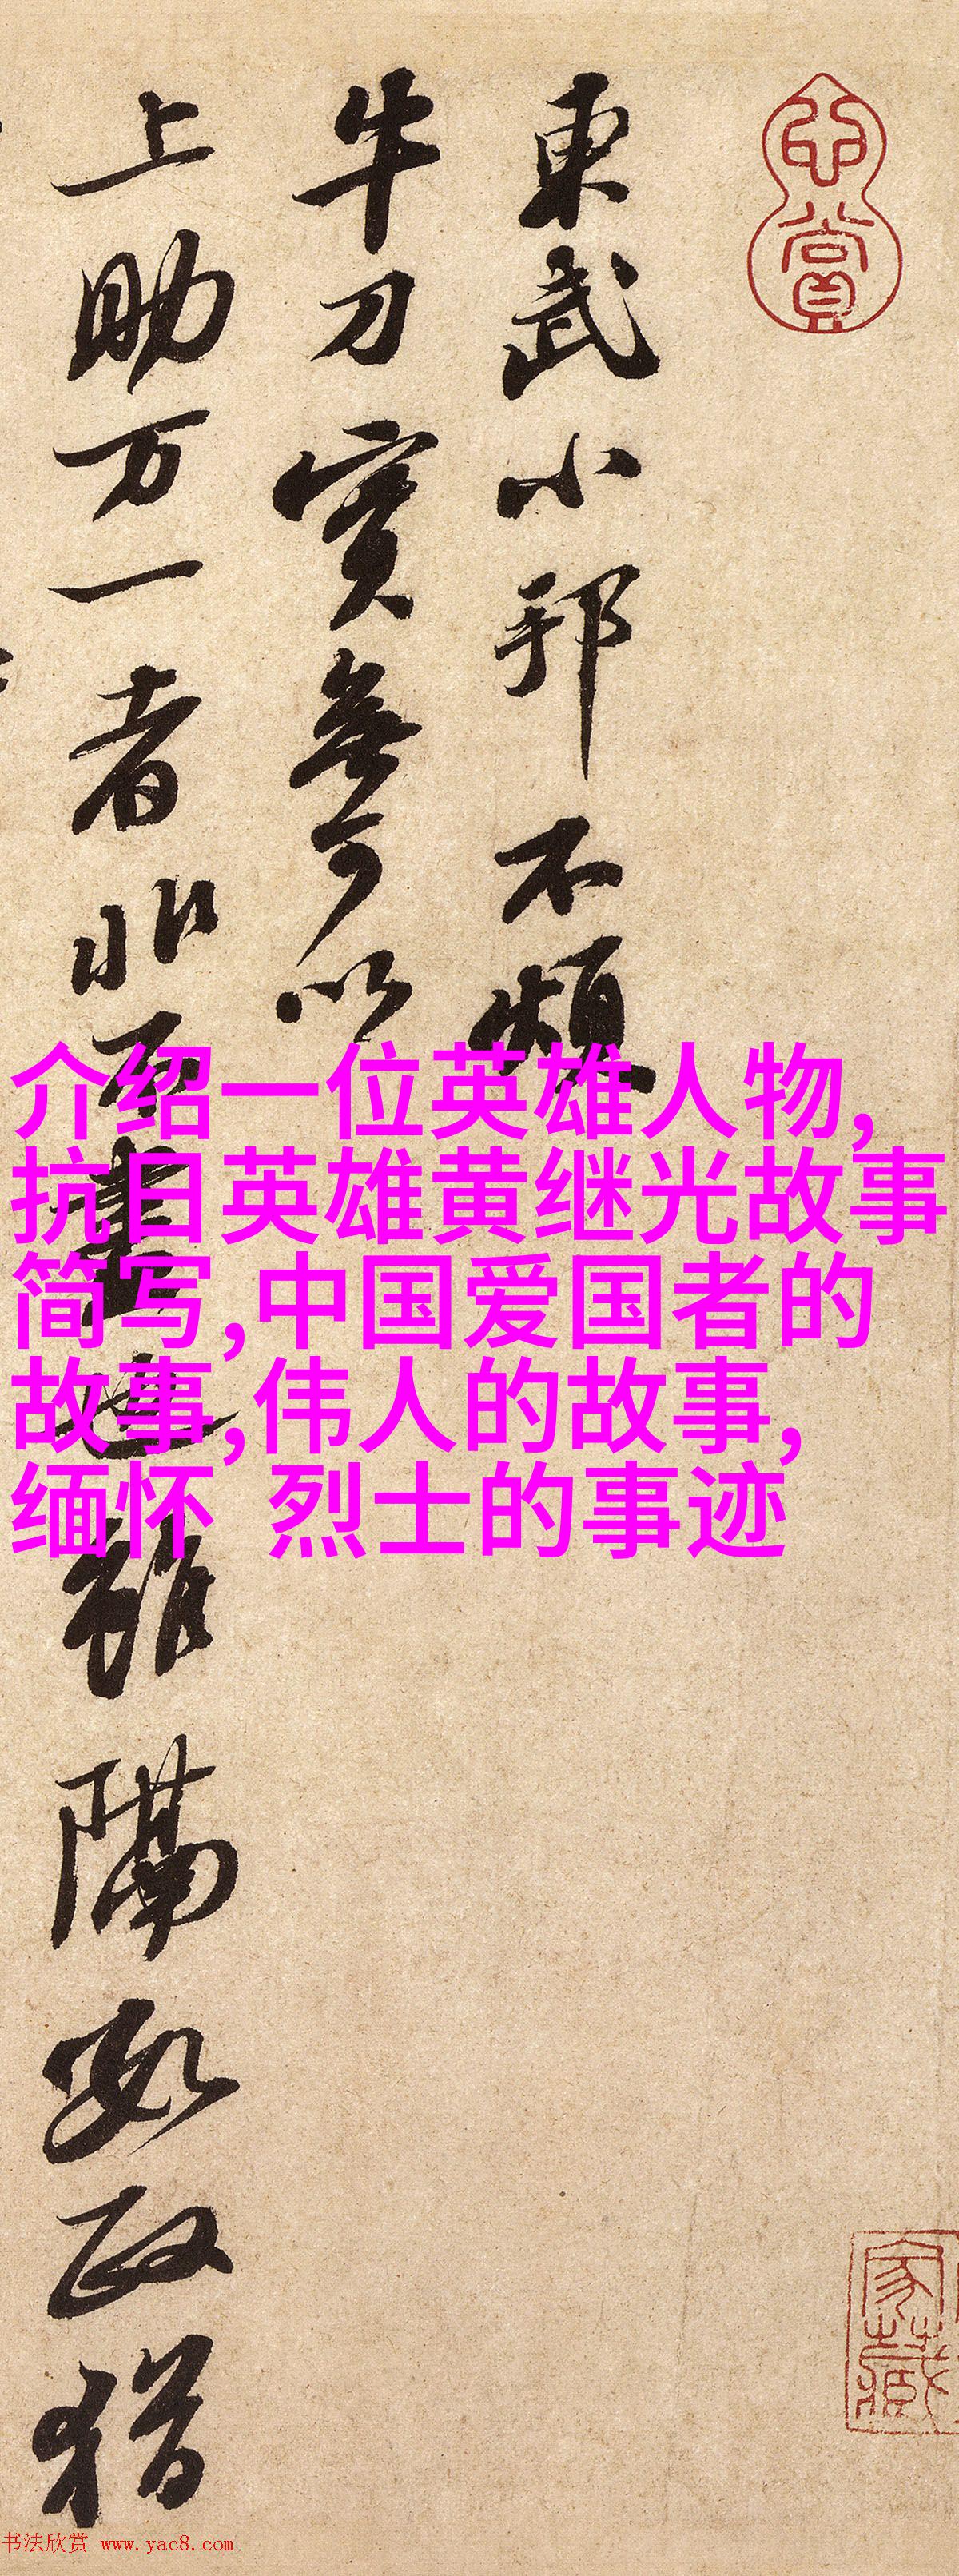 東武小邦不煩
牛刀實無可以
上助万一者非不盡也雖隔數政猶
介绍一位英雄人物,
抗日英雄黄继光故事
简写,中国爱国者的
故事,伟人的故事,
缅怀 烈士的事迹
家藏
书法欣赏 www.yac8.com